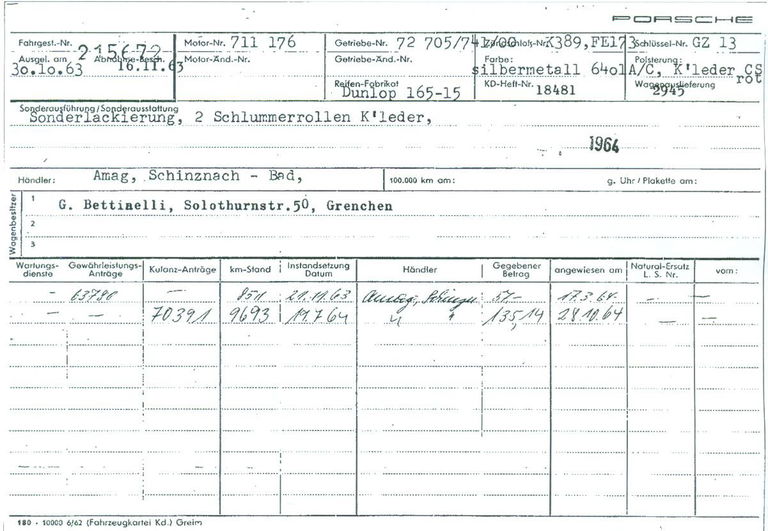 PORSCHE
Fahrgest.-Nr. 215672 Motor-Nr. 711 176 Getriebe-Nr. 72 705/741/00 K389,FE173 Schlüssel-Nr. GZ 13
Ausgel. am 30.10.63 Abnahme-Besch. 16.11.63 Motor-Änd.-Nr. Getriebe-Änd.-Nr. Farbe: silbermetall 6401 Polsterung: A/C, K'leder CS rot
Reifen-Fabrikat Dunlop 165-15 KD-Heft-Nr. 18481 Wagenauslieferung 2945
Sonderausführung/Sonderausstattung
Sonderlackierung, 2 Schlummerrollen K'leder,
1964
Händler: Amag, Schinznach - Bad, 100.000 km am: g. Uhr / Plakette am:
Wagenbesitzer
1 G. Bettinelli, Solothurnstr.50, Grenchen
2
3
Wartungs-dienste Gewährleistungs-Anträge Kulanz-Anträge km-Stand Instandsetzung Datum Händler Gegebener Betrag angewiesen am Natural-Ersatz L. S. Nr. vom:
- 63780 - 8511 21.11.63 Amag, 57.- 17.3.64. - -
- - 70391 9693 17.7.64 " " 135,14 28.10.64 - -
180 - 10000 6/62 (Fahrzeugkartei Kd.) Greim